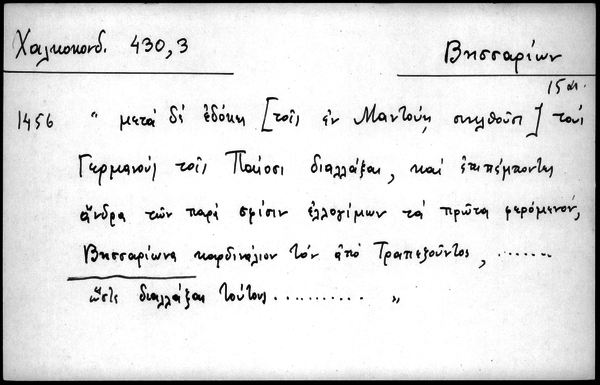 Χαλκοκονδ. 430,3
Βησσαρίων
15 αι.
1456 " μετά δέ ἐδόκει [τοῖς ἐν Μαντούῃ συνελθοῦσι] τούς
Γερμανούς τοῖς Παίοσι διαλλάξαι, καί ἐπιπέμποντες
ἄνδρα τῶν παρά σφίσιν ἐλλογίμων τά πρῶτα φερόμενον,
Βησσαρίωνα καρδινάλιον τόν ἀπό Τραπεζοῦντος, ........
ὥστε διαλλάξαι τούτους ........... "